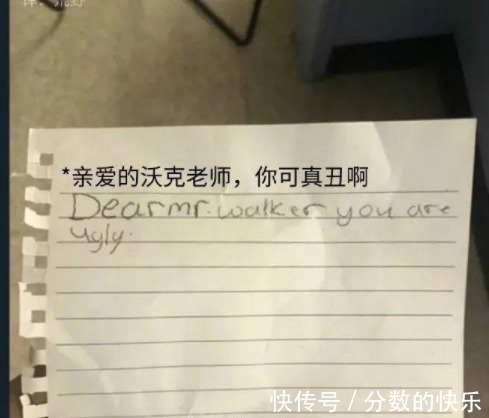 *亲爱的沃克老师，你可真丑啊
Dear mr. walker you are
ugly.
快传号 / 分数的快乐